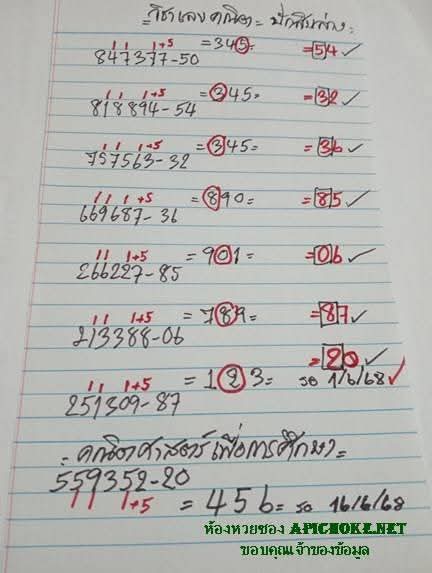 = วิชาเลขคณิต = ปักสิบล่าง =
1 1 1+5 =345= =54✓
847377-50
1 1 1+5 =345= =32✓
818894-54
1 1 1+5 =345= =36✓
757563-32
1 1 1+5 =890= =85✓
669687-36
1 1 1+5 =901= =06✓
266227-85
1 1 1+5 =789= =87✓
213388-06
=20✓
1 1 1+5 =123= รอ 1/6/68✓
251309-87
=คณิตศาสตร์เพื่อการศึกษา=
559352-20
1 1 1+5 =456= รอ 16/6/68
ห้องหวยซอง APICHOKE.NET
ขอบคุณเจ้าของข้อมูล